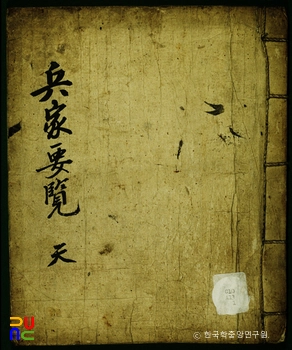 兵家要覽 天
© 한국학중앙연구원